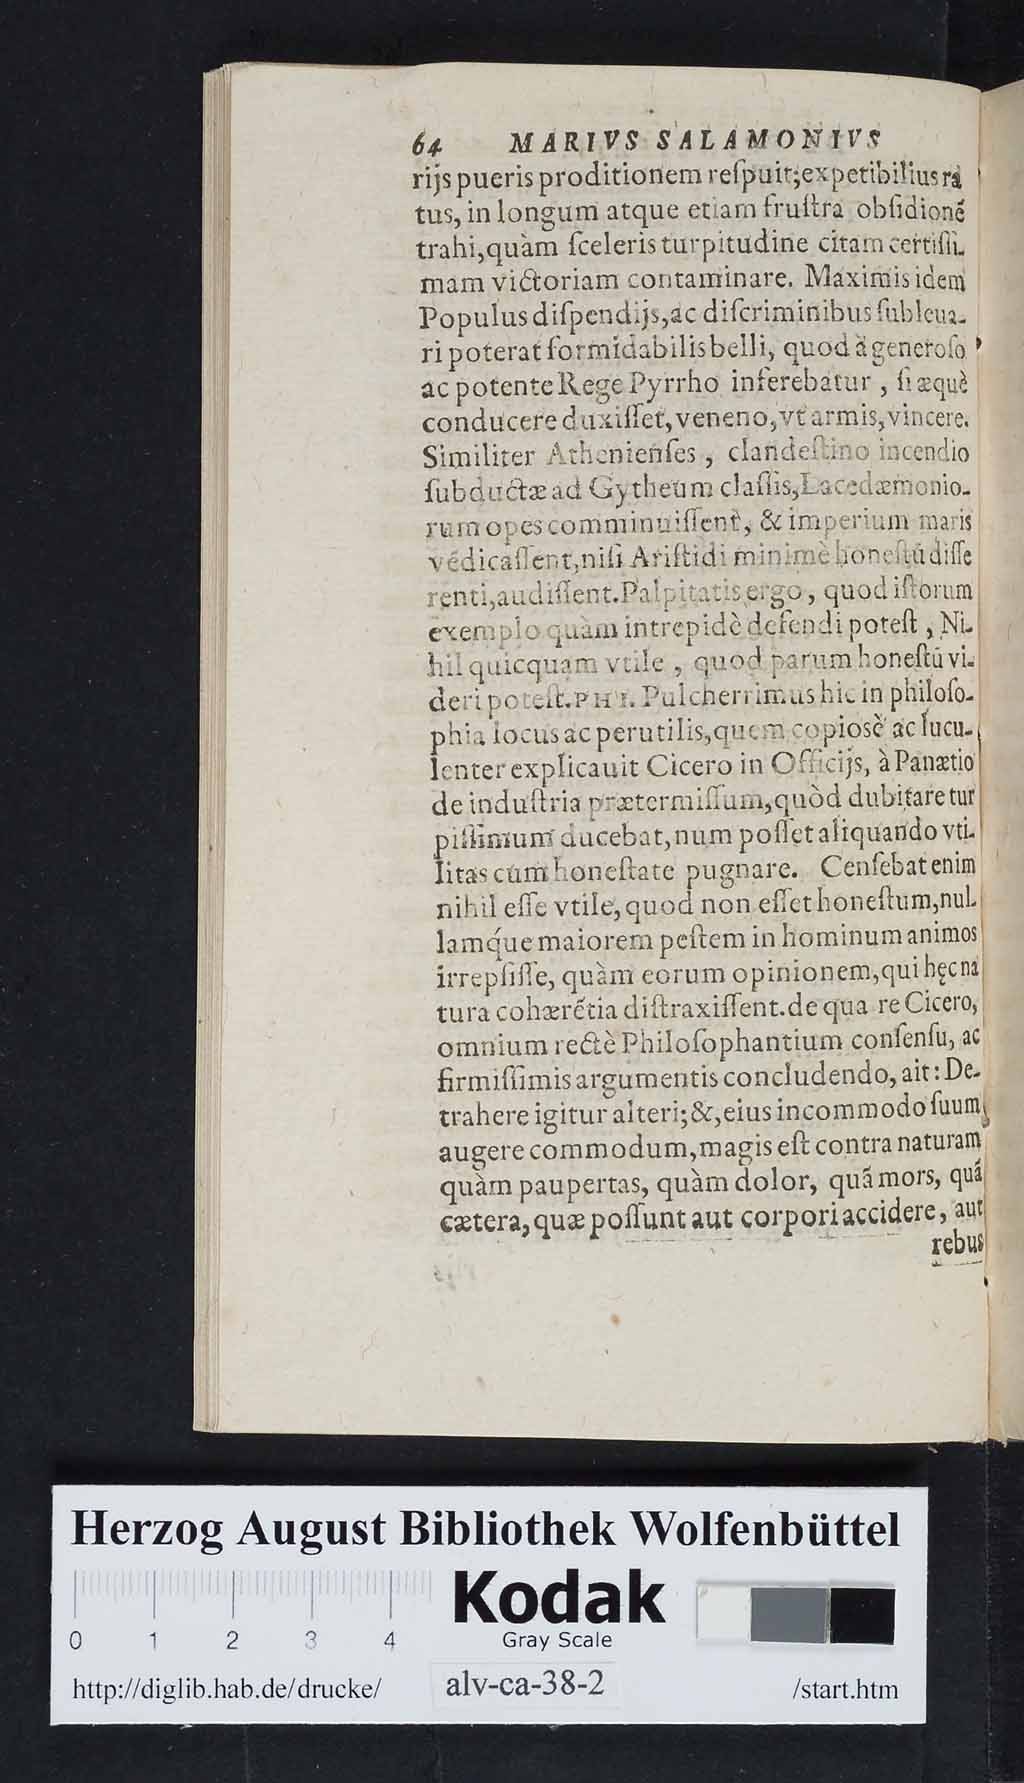 64 MARIVS SALAMONIVS
rijs pueris proditionem reſpuit; expetibilius ra
tus, in longum atque etiam fruſtra obſidionẽ
trahi, quàm ſceleris turpitudine citam certiſſi-
mam victoriam contaminare. Maximis idem
Populus diſpendijs, ac diſcriminibus ſubleua-
ri poterat formidabilis belli, quod à generoſo
ac potente Rege Pyrrho inferebatur, ſi æquè
conducere duxiſſet, veneno, vt armis, vincere.
Similiter Athenienſes, clandeſtino incendio
ſubductæ ad Gytheum claſſis, Lacedæmonio-
rum opes comminuiſſent, & imperium maris
vẽdicaſſent, niſi Ariſtidi minimè honeſtũ diſſe
renti, audiſſent. Palpitatis ergo, quod iſtorum
exemplo quàm intrepidè defendi poteſt, Ni-
hil quicquam vtile, quod parum honeſtũ vi-
deri poteſt. PHI. Pulcherrimus hic in philoſo-
phia locus ac perutilis, quem copiosè ac lucu-
lenter explicauit Cicero in Officijs, à Panætio
de induſtria prætermiſſum, quòd dubitare tur
piſſimum ducebat, num poſſet aliquando vti-
litas cum honeſtate pugnare. Cenſebat enim
nihil eſſe vtile, quod non eſſet honeſtum, nul-
lamq́ue maiorem peſtem in hominum animos
irrepſiſſe, quàm eorum opinionem, qui hęc na
tura cohærẽtia diſtraxiſſent. de qua re Cicero,
omnium rectè Philoſophantium conſenſu, ac
firmiſſimis argumentis concludendo, ait: De-
trahere igitur alteri; &, eius incommodo ſuum
augere commodum, magis eſt contra naturam
quàm paupertas, quàm dolor, quã mors, quã
cætera, quæ poſſunt aut corpori accidere, aut
rebus
Herzog August Bibliothek Wolfenbüttel
Kodak
0 1 2 3 4 Gray Scale
http://diglib.hab.de/drucke/ alv-ca-38-2 /start.htm